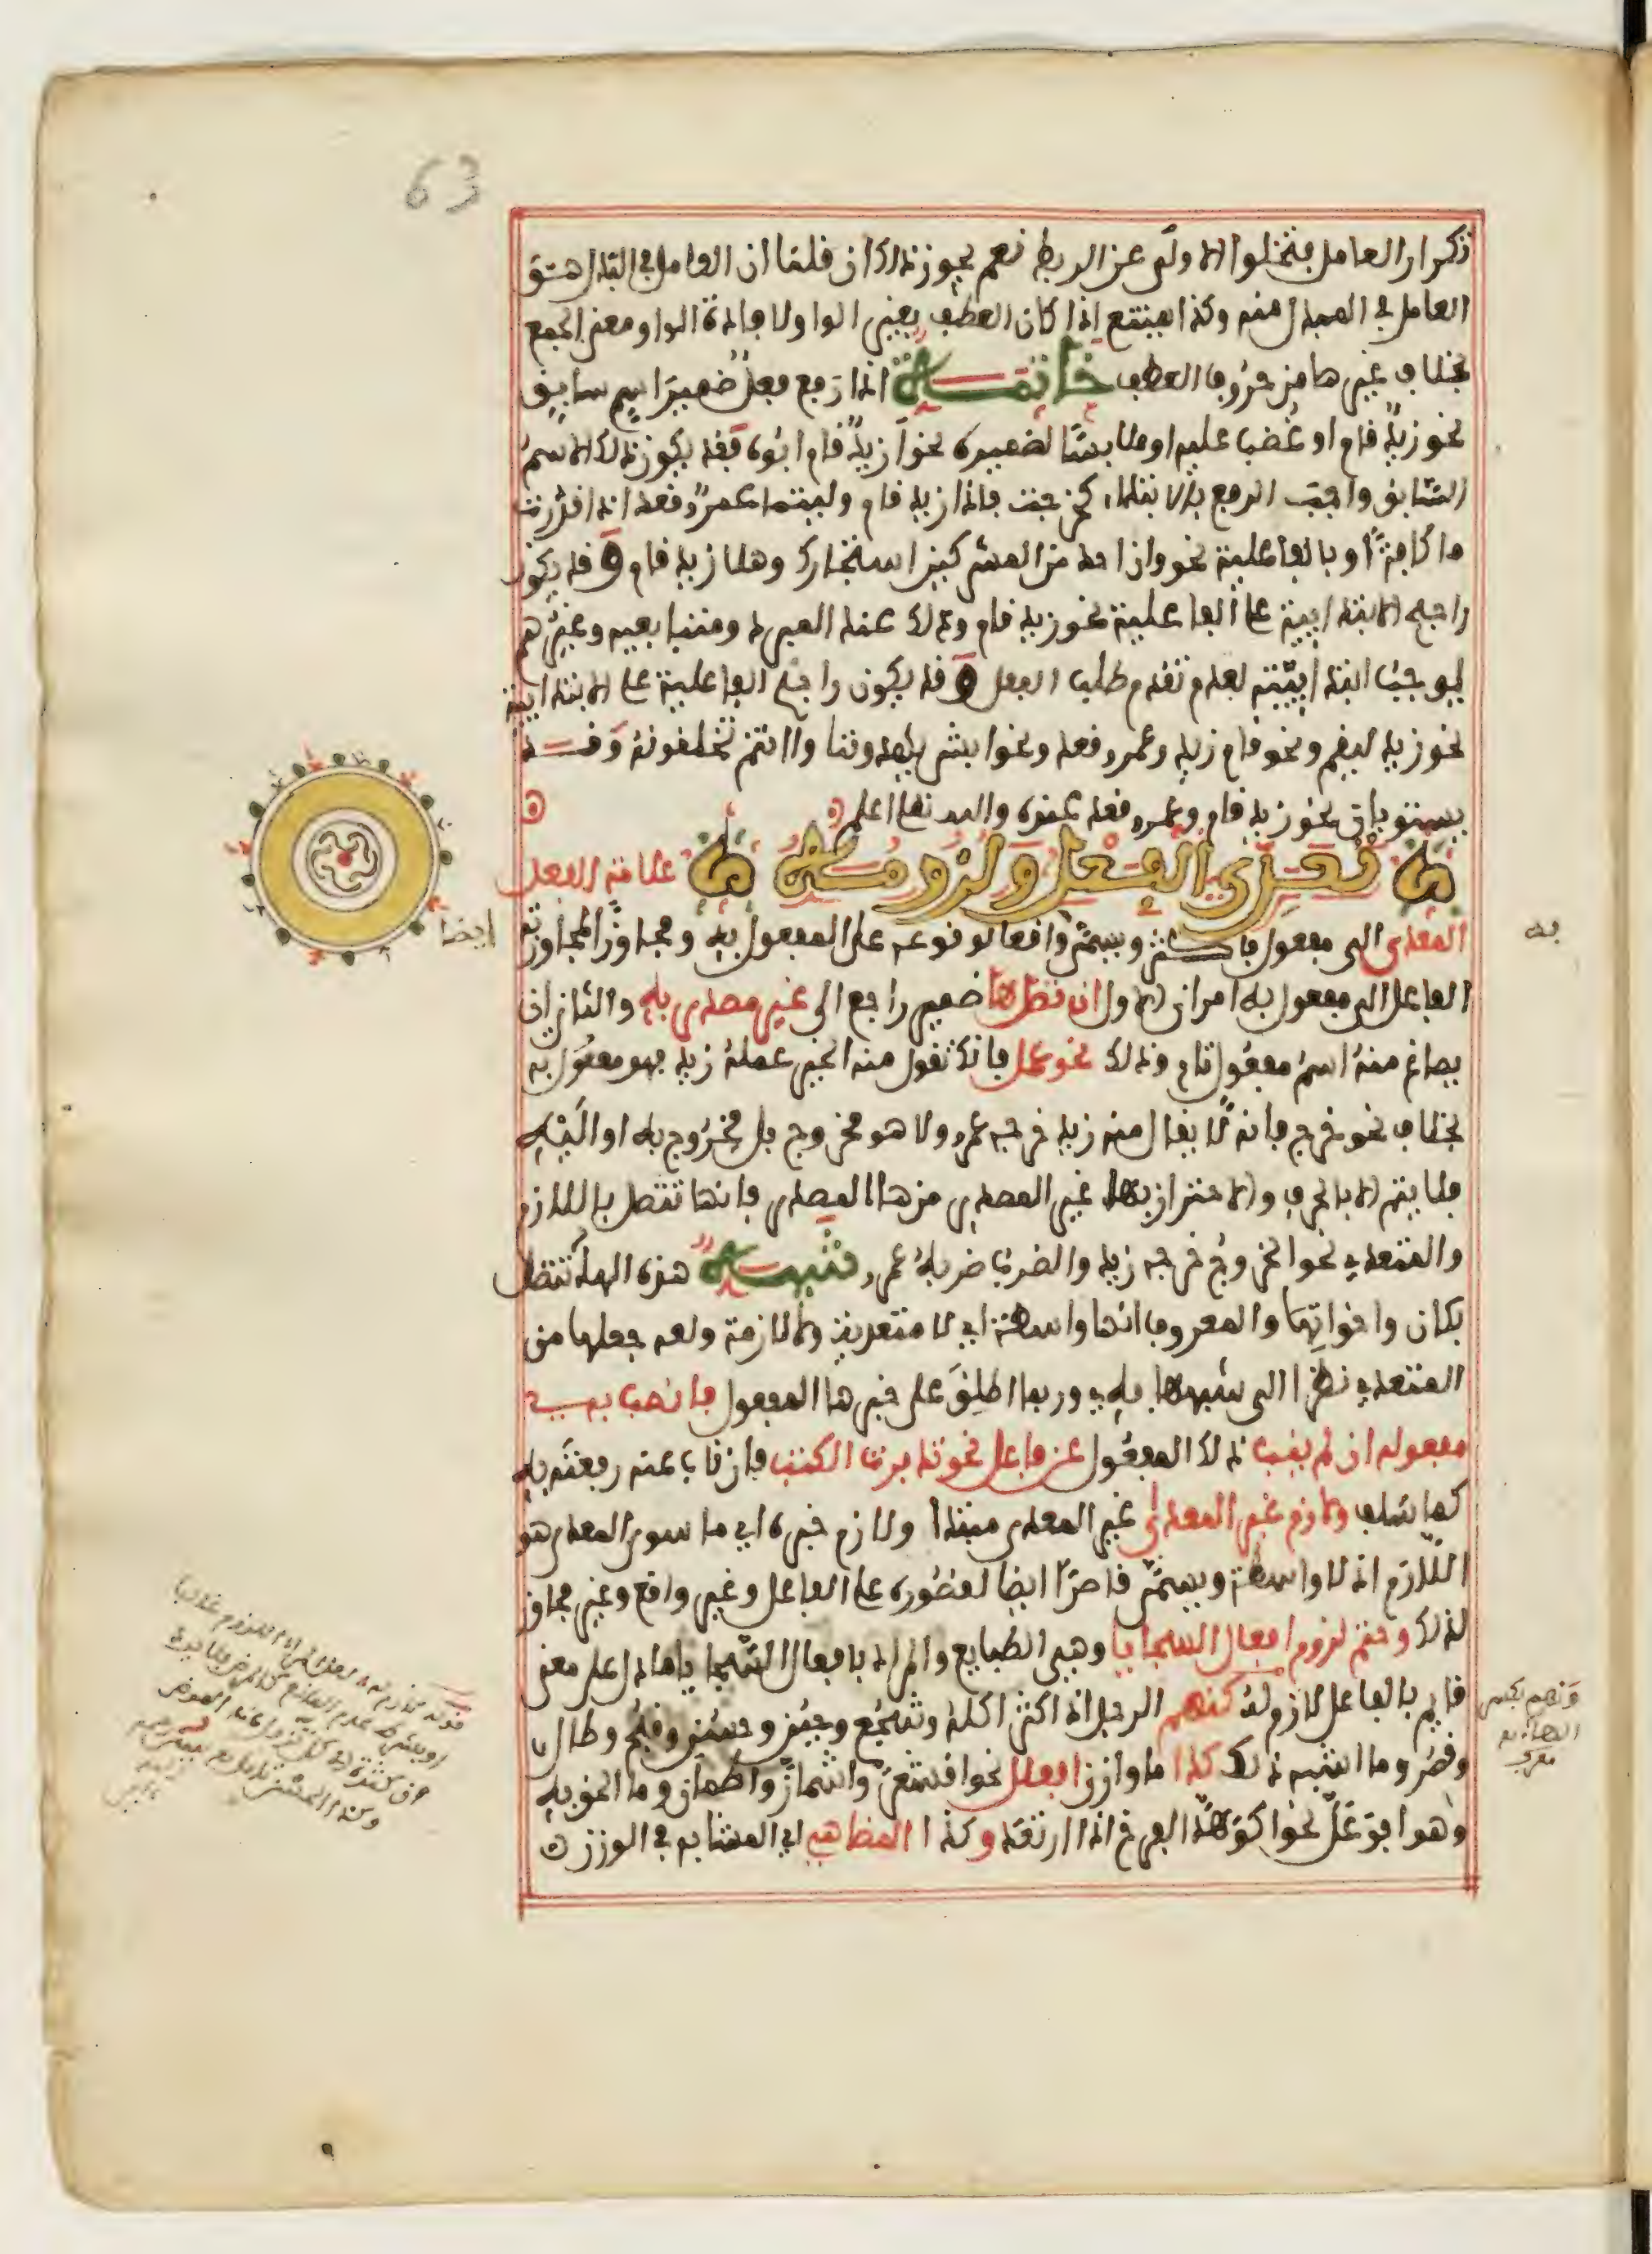 63
تكرار العامل فتخلوا الاولى عن الربط نعم يجوز ذلك ان قلنا ان العامل في البدل هو
العامل في المبدل منه وكذا يمتنع اذا كان العطف بغير الواو لافادة الواو معنى الجمع
بخلاف غيرها من حروف العطف خاتمة اذا رفع فعل ضمير اسم سابق
نحو زيد قام او غضب عليه او ملابسا لضميره نحو ازيد قام ابوه فقد يكون ذلك الاسم
السابق واجب الرفع بالابتداء كخرجت فاذا زيد قام وليتما عمرو قعد اذا قدرت
ما كافة او بالفاعلية نحو وان احد من المشركين استجارك وهلا زيد قام وقد يكون
راجح الابتدائية على الفاعلية نحو زيد قام وذلك عند المبرد ومتابعيه وغيرهم
يوجب ابتدائيته لعدم تقدم طلب الفعل وقد يكون راجح الفاعلية على الابتدائية
نحو زيد ليقم ونحو قام زيد وعمرو قعد ونحو ابشر يهدوننا و اانتم تخلقونه وقد
يستويان نحو زيد قام وعمرو قعد عنده والله تعالى اعلم
تعدي الفعل ولزومه علامة الفعل
المعدى الى مفعول به فاكثر ويسمى واقعا لوقوعه على المفعول به ومجاوزا لمجاوزته
ايضا
به
الفاعل الى مفعول به امران الاول ان تصل ها ضمير راجع الى غير مصدر به والثاني ان
يصاغ منه اسم مفعول تام وذلك نحو عمل فانك تقول منه الخير عمله زيد فهو معمول به
بخلاف نحو خرج فانه لا يقال منه زيد خرجه عمرو ولا هو مخروج بل مخروج به او اليه
فلا يتم الا بالحرف والاحتراز بهاء غير المصدر من هاء المصدر فانها تتصل باللازم
والمتعدي نحو الخروج خرجه زيد والضرب ضربه عمرو تنبيه هذه الهاء تتصل
بكان واخواتها والمعروف انها واسطة اي لا متعدية ولا لازمة ولعله جعلها من
المتعدي نظرا الى شبهها به وربما اطلق على خبرها المفعول فانصب به
مفعوله ان لم ينب ذلك المفعول عن فاعل نحو تدبرت الكتب فان ناب عنه رفعته به
كما سلف ولازم غير المعدى غير المعدى مبتدأ ولازم خبره اي ما سوى المعدى هو
اللازم اذ لا واسطة ويسمى قاصرا ايضا لقصوره على الفاعل وغير واقع وغير مجاوز
لذلك وحتم لزوم افعال السجايا وهي الطبايع والمراد بافعال السجايا ما دل على معنى
قايم بالفاعل لازم له كنهم الرجل اذا كثر اكله وشجع وجبن وحسن وقبح وطال
وقصر وما اشبه ذلك كذا ما وازن افعلل نحو اقشعر واشمأز واطمأن وما الحق به
وهو افوعل نحو اكوهد الفرخ اذا ارتعد وكذا المضاهي اي المشابه في الوزن
ونهم بكسر
الهاء